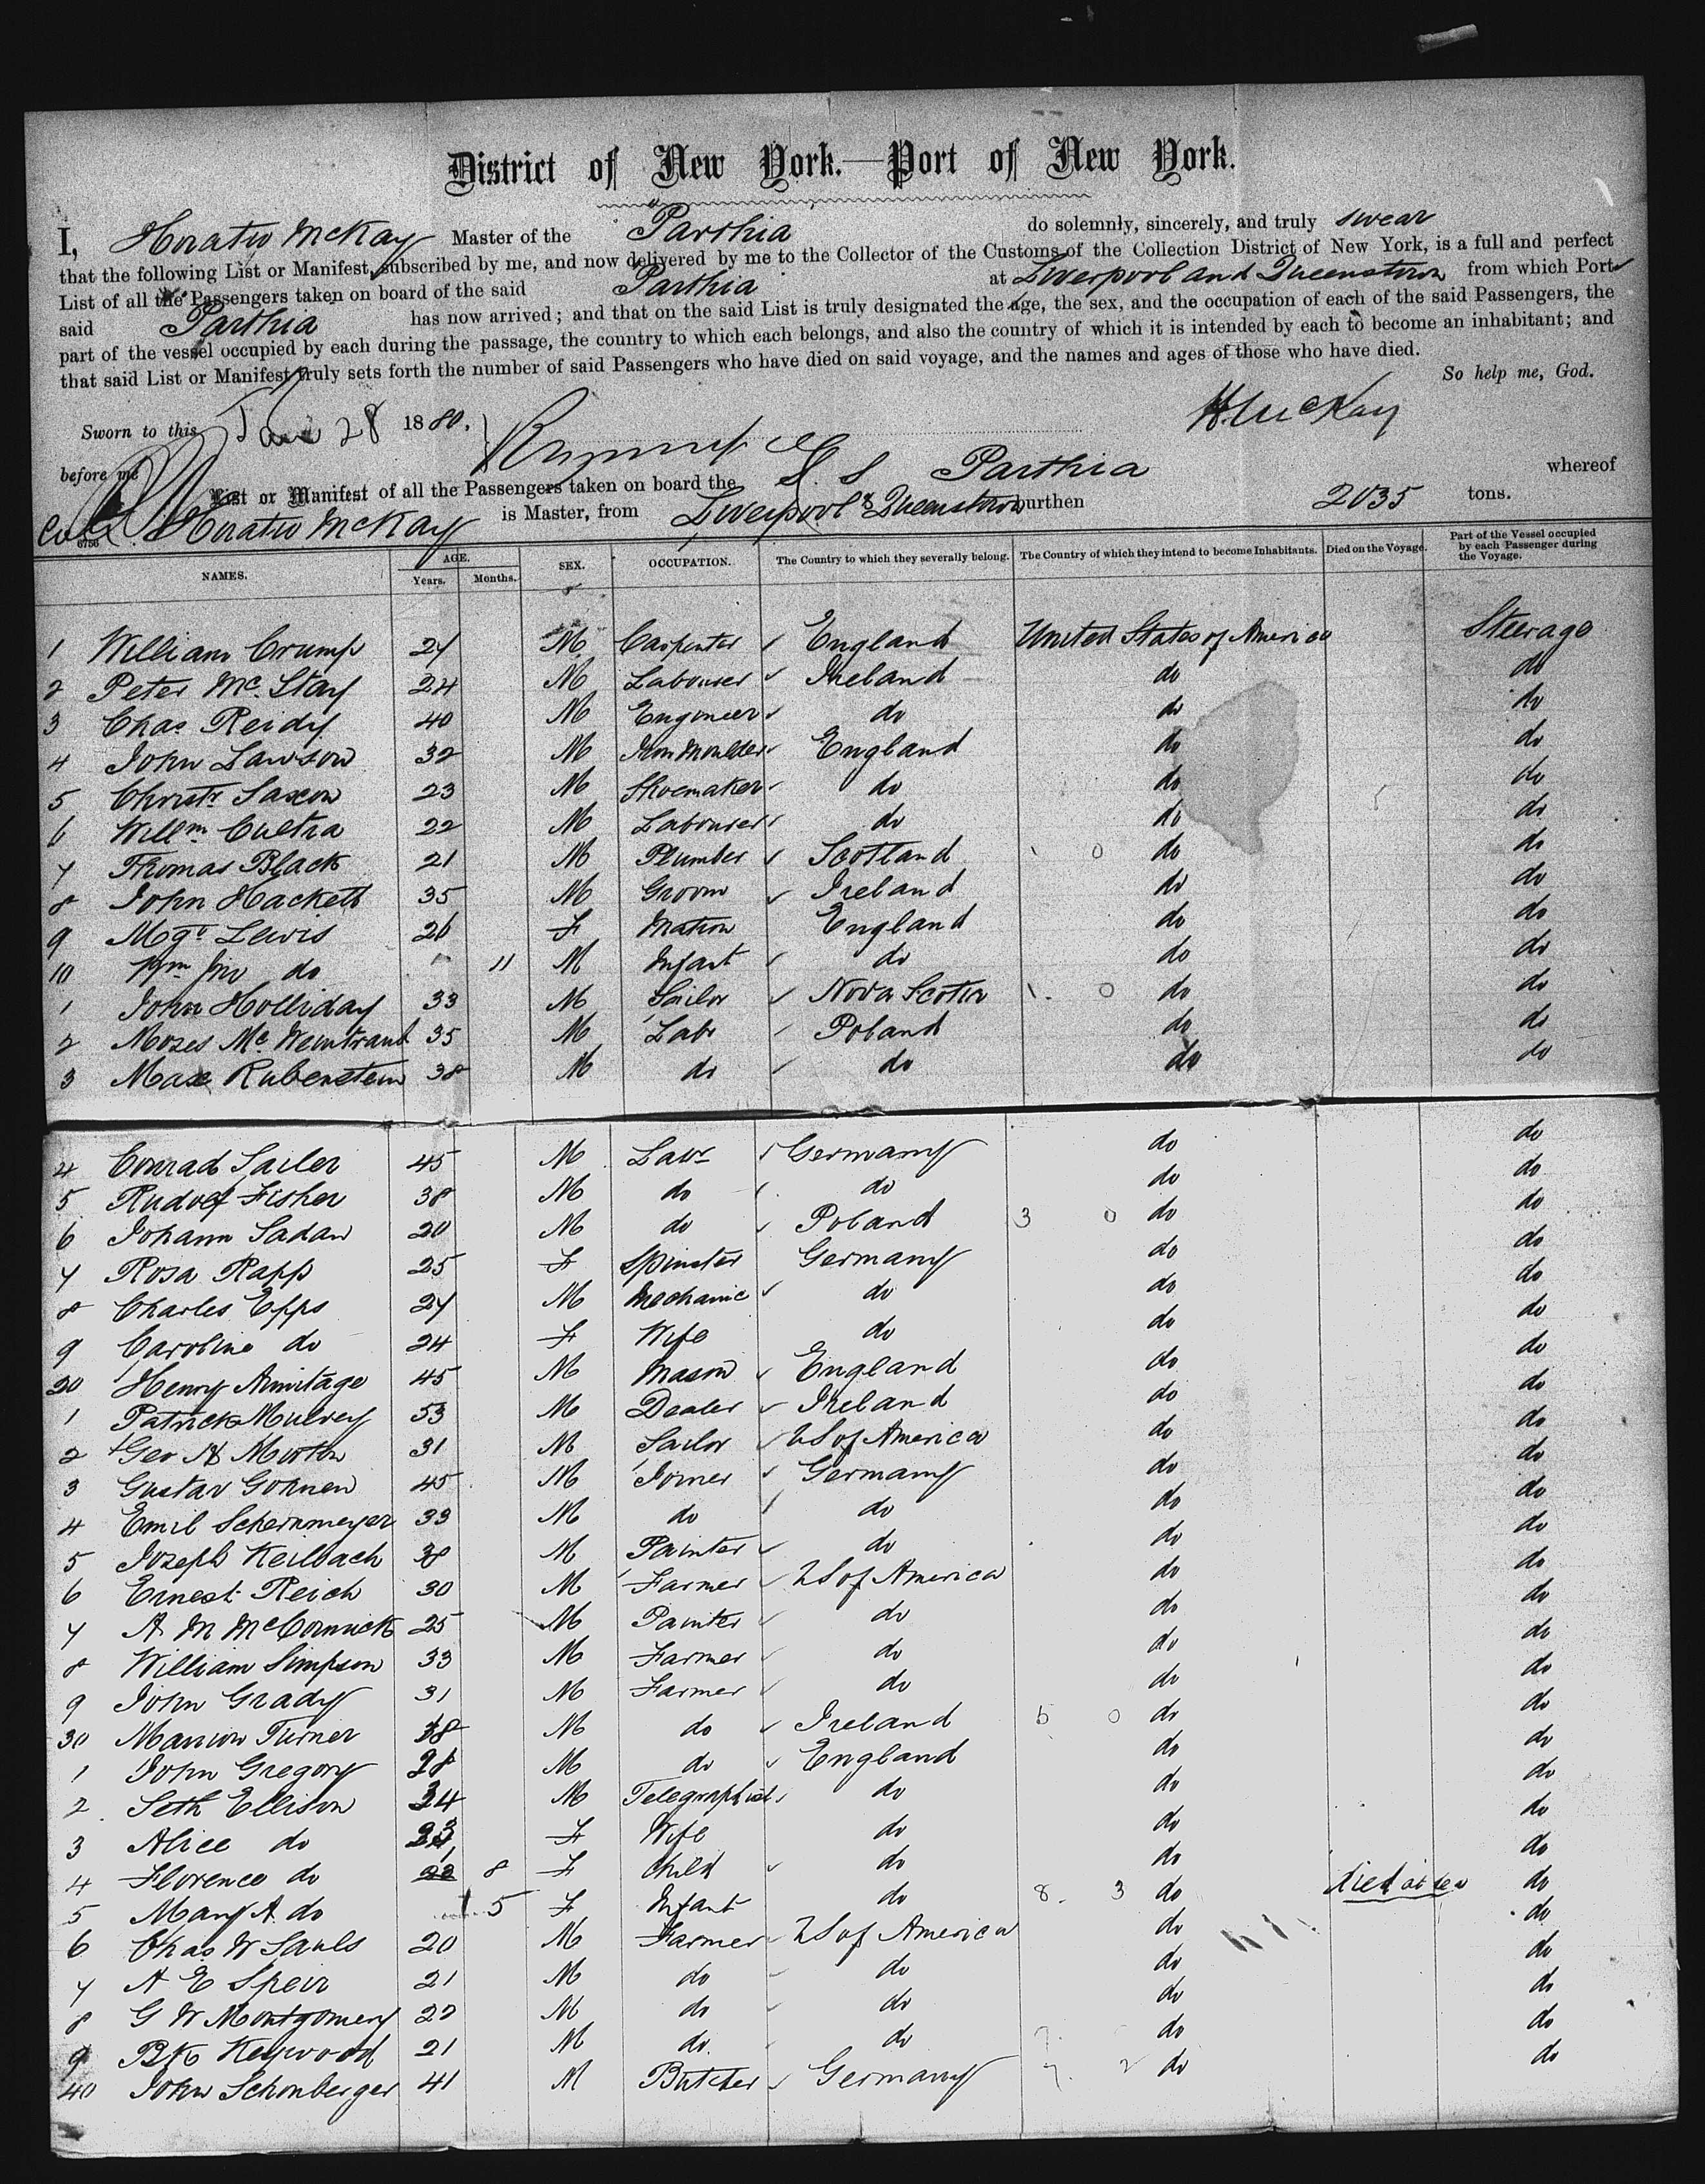 District of New York.—Port of New York.
I, Horatio McKay Master of the Parthia do solemnly, sincerely, and truly swear
that the following List or Manifest, subscribed by me, and now delivered by me to the Collector of the Customs of the Collection District of New York, is a full and perfect
List of all the Passengers taken on board of the said Parthia at Liverpool and Queenstown from which Ports
said Parthia has now arrived; and that on the said List is truly designated the age, the sex, and the occupation of each of the said Passengers, the
part of the vessel occupied by each during the passage, the country to which each belongs, and also the country of which it is intended by each to become an inhabitant; and
that said List or Manifest truly sets forth the number of said Passengers who have died on said voyage, and the names and ages of those who have died.
So help me, God.
Sworn to this Jan 28 1880. H McKay
before me
List or Manifest of all the Passengers taken on board the S. S Parthia whereof
Horatio McKay is Master, from Liverpool & Queenstown burthen 2035 tons.
6756
NAMES. AGE. Years. Months. SEX. OCCUPATION. The Country to which they severally belong. The Country of which they intend to become Inhabitants. Died on the Voyage. Part of the Vessel occupied by each Passenger during the Voyage.
1 William Crump 27 M Carpenter England United States of America Steerage
2 Peter Mc. Stay 24 M Labourer Ireland do do
3 Chas Reidy 40 M Engineer do do do
4 John Lawson 32 M Iron Moulder England do do
5 Christr Saxon 23 M Shoemaker do do do
6 Willm Cultra 22 M Labourer do do do
7 Thomas Black 21 M Plumber Scotland 1 0 do do
8 John Hackett 35 M Groom Ireland do do
9 Mgt Lewis 26 F Matron England do do
10 Wm Jnr do 11 M Infant do do do
1 John Holliday 33 M Sailor Nova Scotia 1. 0 do do
2 Mozes Mc. Weintraub 35 M Labr Poland do do
3 Max Rubenstein 38 M do do do do
4 Conrad Sailer 45 M Labr Germany do do
5 Rudolf Fisher 38 M do do do do
6 Johann Sadaw 20 M do Poland 3 0 do do
7 Rosa Rapp 25 F Spinster Germany do do
8 Charles Epps 27 M Mechanic do do do
9 Caroline do 24 F Wife do do do
20 Henry Armitage 45 M Mason England do do
1 Patrick Mulvey 53 M Dealer Ireland do do
2 Geo Morton 31 M Sailor US of America do do
3 Gustav Gohnen 45 M Joiner Germany do do
4 Emil Schernmeyer 33 M do do do do
5 Jozeph Keilbach 38 M Painter do do do
6 Ernest Reich 30 M Farmer US of America do do
7 A M McCormick 25 M Painter do do do
8 William Simpson 33 M Farmer do do do
9 John Grady 31 M Farmer do do do
30 Marion Turner 38 M do Ireland 5 0 do do
1 John Gregory 28 M do England do do
2 Seth Ellison 34 M Telegraphist do do do
3 Alice do F Wife do do do
4 Florence do 8 F Child do do do
5 Mary A. do 5 F Infant do 8. 3 do died at sea do
6 Chas W Sauls 20 M Farmer US of America do do
7 A E Speir 21 M do do do do
8 G W Montgomery 22 M do do do do
9 Keywood 21 M do do do do
40 John Schonberger 41 M Butcher Germany 7. 2 do do